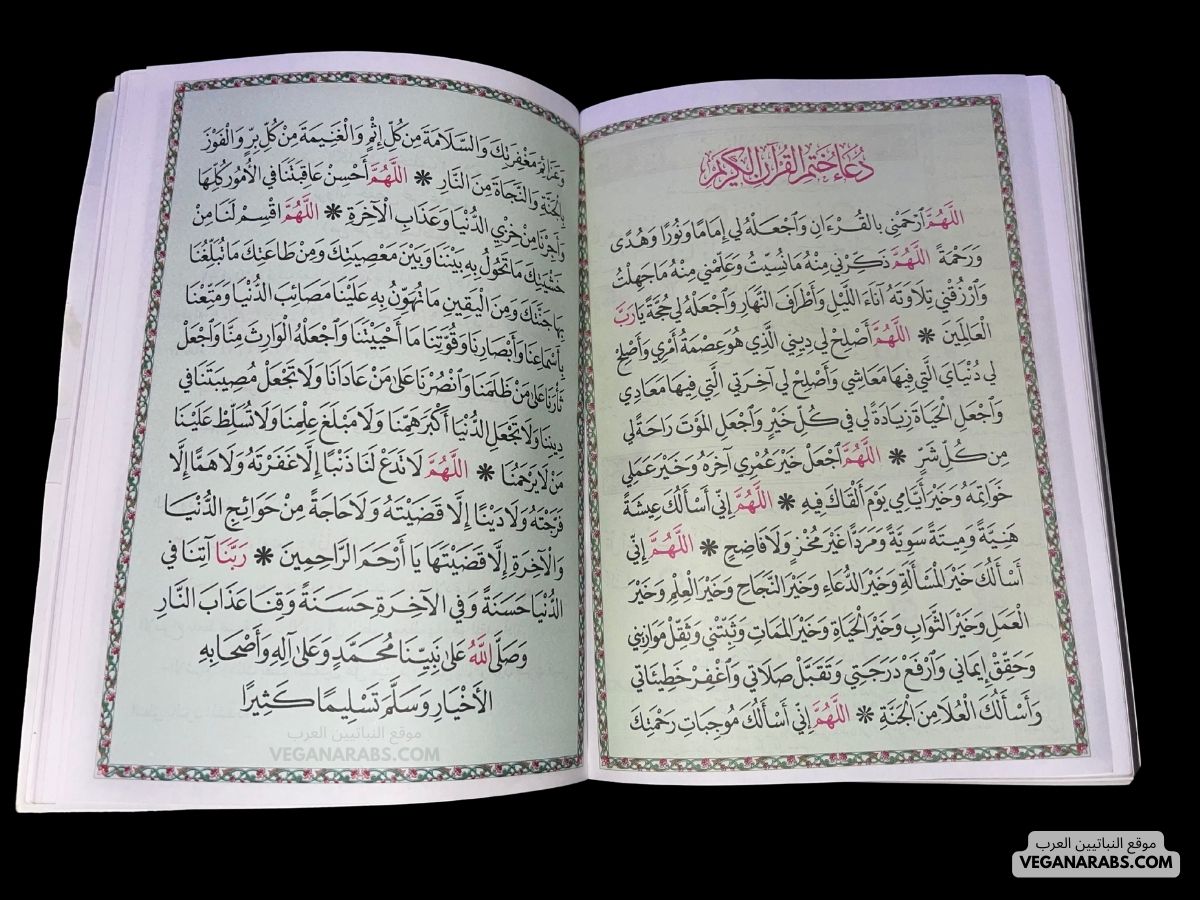 دُعَاءُ خَتْمِ القُرْآنِ الكَرِيمِ
اللَّهُمَّ ٱرْحَمْنِي بالقُرْءَانِ وَٱجْعَلْهُ لِي إِمَامًا وَنُورًا وَهُدًى
وَرَحْمَةً اللَّهُمَّ ذَكِّرْنِي مِنْهُ مَانُسِّيتُ وَعَلِّمْنِي مِنْهُ مَاجَهِلْتُ
وَٱرْزُقْنِي تِلَاوَتَهُ آنَاءَ اللَّيْلِ وَأَطْرَافَ النَّهَارِ وَٱجْعَلْهُ لِي حُجَّةً يَارَبَّ
الْعَالَمِينَ * اللَّهُمَّ أَصْلِحْ لِي دِينِي الَّذِي هُوَ عِصْمَةُ أَمْرِي وَأَصْلِحْ
لِي دُنْيَايَ الَّتِي فِيهَا مَعَاشِي وَأَصْلِحْ لِي آخِرَتِي الَّتِي فِيهَا مَعَادِي
وَٱجْعَلِ الْحَيَاةَ زِيَادَةً لِي فِي كُلِّ خَيْرٍ وَٱجْعَلِ المَوْتَ رَاحَةً لِي
مِن كُلِّ شَرٍّ * اللَّهُمَّ ٱجْعَلْ خَيْرَ عُمْرِي آخِرَهُ وَخَيْرَ عَمَلِي
خَوَاتِمَهُ وَخَيْرَ أَيَّامِي يَوْمَ أَلْقَاكَ فِيهِ * اللَّهُمَّ إِنِّي أَسْأَلُكَ عِيشَةً
هَنِيَّةً وَمِيتَةً سَوِيَّةً وَمَرَدًّا غَيْرَ مُخْزٍ وَلَا فَاضِحٍ * اللَّهُمَّ إِنِّي
أَسْأَلُكَ خَيْرَ المَسْأَلَةِ وَخَيْرَ الدُّعَاءِ وَخَيْرَ النَّجَاحِ وَخَيْرَ الْعِلْمِ وَخَيْرَ
الْعَمَلِ وَخَيْرَ الثَّوَابِ وَخَيْرَ الْحَيَاةِ وَخَيْرَ المَمَاتِ وَثَبِّتْنِي وَثَقِّلْ مَوَازِينِي
وَحَقِّقْ إِيمَانِي وَٱرْفَعْ دَرَجَتِي وَتَقَبَّلْ صَلَاتِي وَٱغْفِرْ خَطِيئَاتِي
وَأَسْأَلُكَ الْعُلَا مِنَ الْجَنَّةِ * اللَّهُمَّ إِنِّي أَسْأَلُكَ مُوجِبَاتِ رَحْمَتِكَ
وَعَزَائِمَ مَغْفِرَتِكَ وَالسَّلَامَةَ مِن كُلِّ إِثْمٍ وَالْغَنِيمَةَ مِنْ كُلِّ بِرٍّ وَالْفَوْزَ
بِالْجَنَّةِ وَالنَّجَاةَ مِنَ النَّارِ * اللَّهُمَّ أَحْسِنْ عَاقِبَتَنَا فِي الْأُمُورِ كُلِّهَا
وَأَجِرْنَا مِنْ خِزْيِ الدُّنْيَا وَعَذَابِ الْآخِرَةِ * اللَّهُمَّ اقْسِمْ لَنَا مِنْ
خَشْيَتِكَ مَا تَحُولُ بِهِ بَيْنَنَا وَبَيْنَ مَعْصِيَتِكَ وَمِنْ طَاعَتِكَ مَا تُبَلِّغُنَا
بِهَا جَنَّتَكَ وَمِنَ الْيَقِينِ مَا تُهَوِّنُ بِهِ عَلَيْنَا مَصَائِبَ الدُّنْيَا وَمَتِّعْنَا
بِأَسْمَاعِنَا وَأَبْصَارِنَا وَقُوَّتِنَا مَا أَحْيَيْتَنَا وَٱجْعَلْهُ الْوَارِثَ مِنَّا وَٱجْعَلْ
ثَأْرَنَا عَلَىٰ مَنْ ظَلَمَنَا وَٱنْصُرْنَا عَلَىٰ مَنْ عَادَانَا وَلَا تَجْعَلْ مُصِيبَتَنَا فِي
دِينِنَا وَلَا تَجْعَلِ الدُّنْيَا أَكْبَرَ هَمِّنَا وَلَا مَبْلَغَ عِلْمِنَا وَلَا تُسَلِّطْ عَلَيْنَا
مَنْ لَا يَرْحَمُنَا * اللَّهُمَّ لَا تَدَعْ لَنَا ذَنْبًا إِلَّا غَفَرْتَهُ وَلَا هَمًّا إِلَّا
فَرَّجْتَهُ وَلَا دَيْنًا إِلَّا قَضَيْتَهُ وَلَا حَاجَةً مِنْ حَوَائِجِ الدُّنْيَا
وَالْآخِرَةِ إِلَّا قَضَيْتَهَا يَا أَرْحَمَ الرَّاحِمِينَ * رَبَّنَا آتِنَا فِي
الدُّنْيَا حَسَنَةً وَفِي الآخِرَةِ حَسَنَةً وَقِنَا عَذَابَ النَّارِ
وَصَلَّى اللَّهُ عَلَىٰ نَبِيِّنَا مُحَمَّدٍ وَعَلَىٰ آلِهِ وَأَصْحَابِهِ
الأَخْيَارِ وَسَلَّمَ تَسْلِيمًا كَثِيرًا
موقع النباتيين العرب
VEGANARABS.COM
موقع النباتيين العرب
VEGANARABS.COM